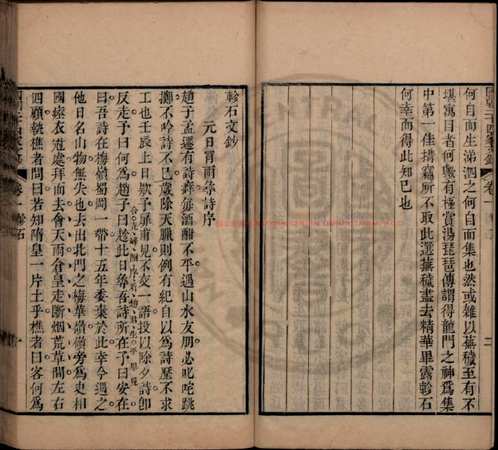 何自而生涕泗之何自而集也然或雖以蕪穢至有不
堪寓目者何嘗有極賞湯琵琶傳謂得龍門之神爲集
中第一佳搆窩所不取此選蕪穢盡去精華畢露軫石
何幸而得此知已也
軫石文鈔
元日冒雨尋詩序
趙子孟遷有詩癖每酒酣不平遇山水友朋必叱咤跳
擲不吟詩不已歲除天臘則例有紀自以爲詩壓不求
工也壬辰上日欵予扉甫見不交一語投以除夕詩卽
反走予曰何爲趙子曰趁此日尋吾詩所在予曰安在
曰吾詩在梅嶺蜀岡一帶十五年委棄於此幸今遇之
他日名山物無失也去出北門之梅華嶺嶺旁爲史相
國瘞衣冠處拜而去會天雨倉皇走斷烟荒草間左右
四顧執樵者問曰若知隋皇一片土乎樵者曰客何爲